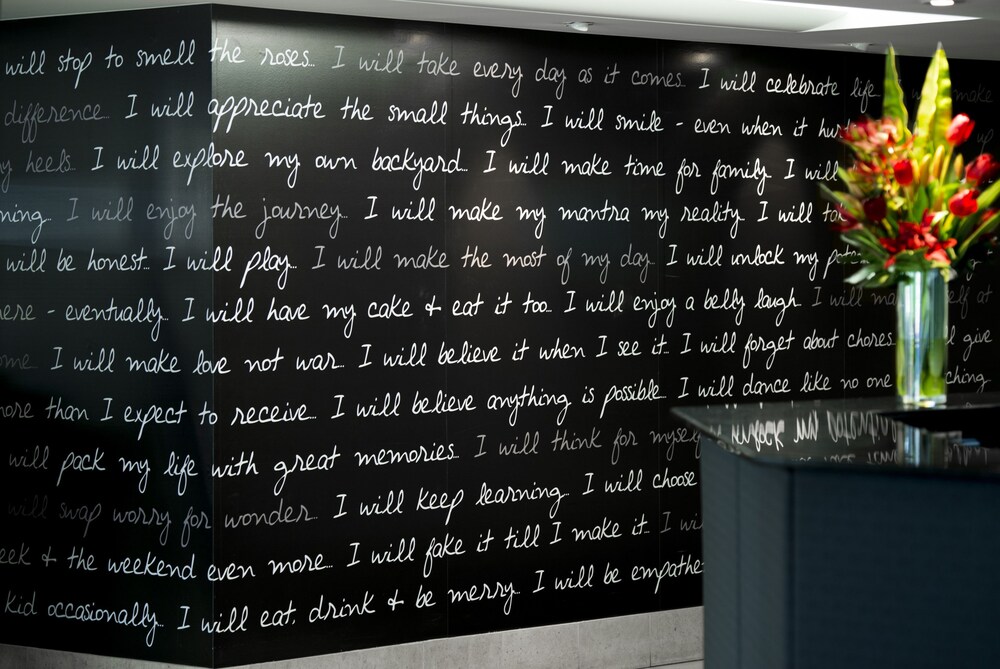 will stop to smell the roses... I will take every day as it comes... I will celebrate life make
difference... I will appreciate the small things... I will smile - even when it hur up
y heels... I will explore my own backyard... I will make time for family... I will
ning... I will enjoy the journey... I will make my mantra my reality... I will ta
will be honest... I will play... I will make the most of my day... I will unlock my pote
here - eventually... I will have my cake & eat it too... I will enjoy a belly laugh... I will ma elf at
ome... I will make love not war... I will believe it when I see it... I will forget about chores... l give
more than I expect to receive... I will believe anything is possible... I will dance like no one ching
will pack my life with great memories... I will think for myself
will swap worry for wonder... I will keep learning... I will choose
eek & the weekend even more... I will fake it till I make it... I wi
kid occasionally... I will eat, drink & be merry... I will be empathe